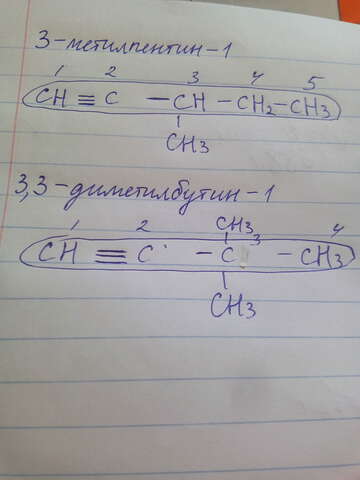 3-метилпентин-1
1 2 3 4 5
CH ≡ C — CH — CH₂ — CH3
CH3
3,3-диметилбутин-1
CH3
1 2 3 4
CH ≡ C — C — CH3
CH3